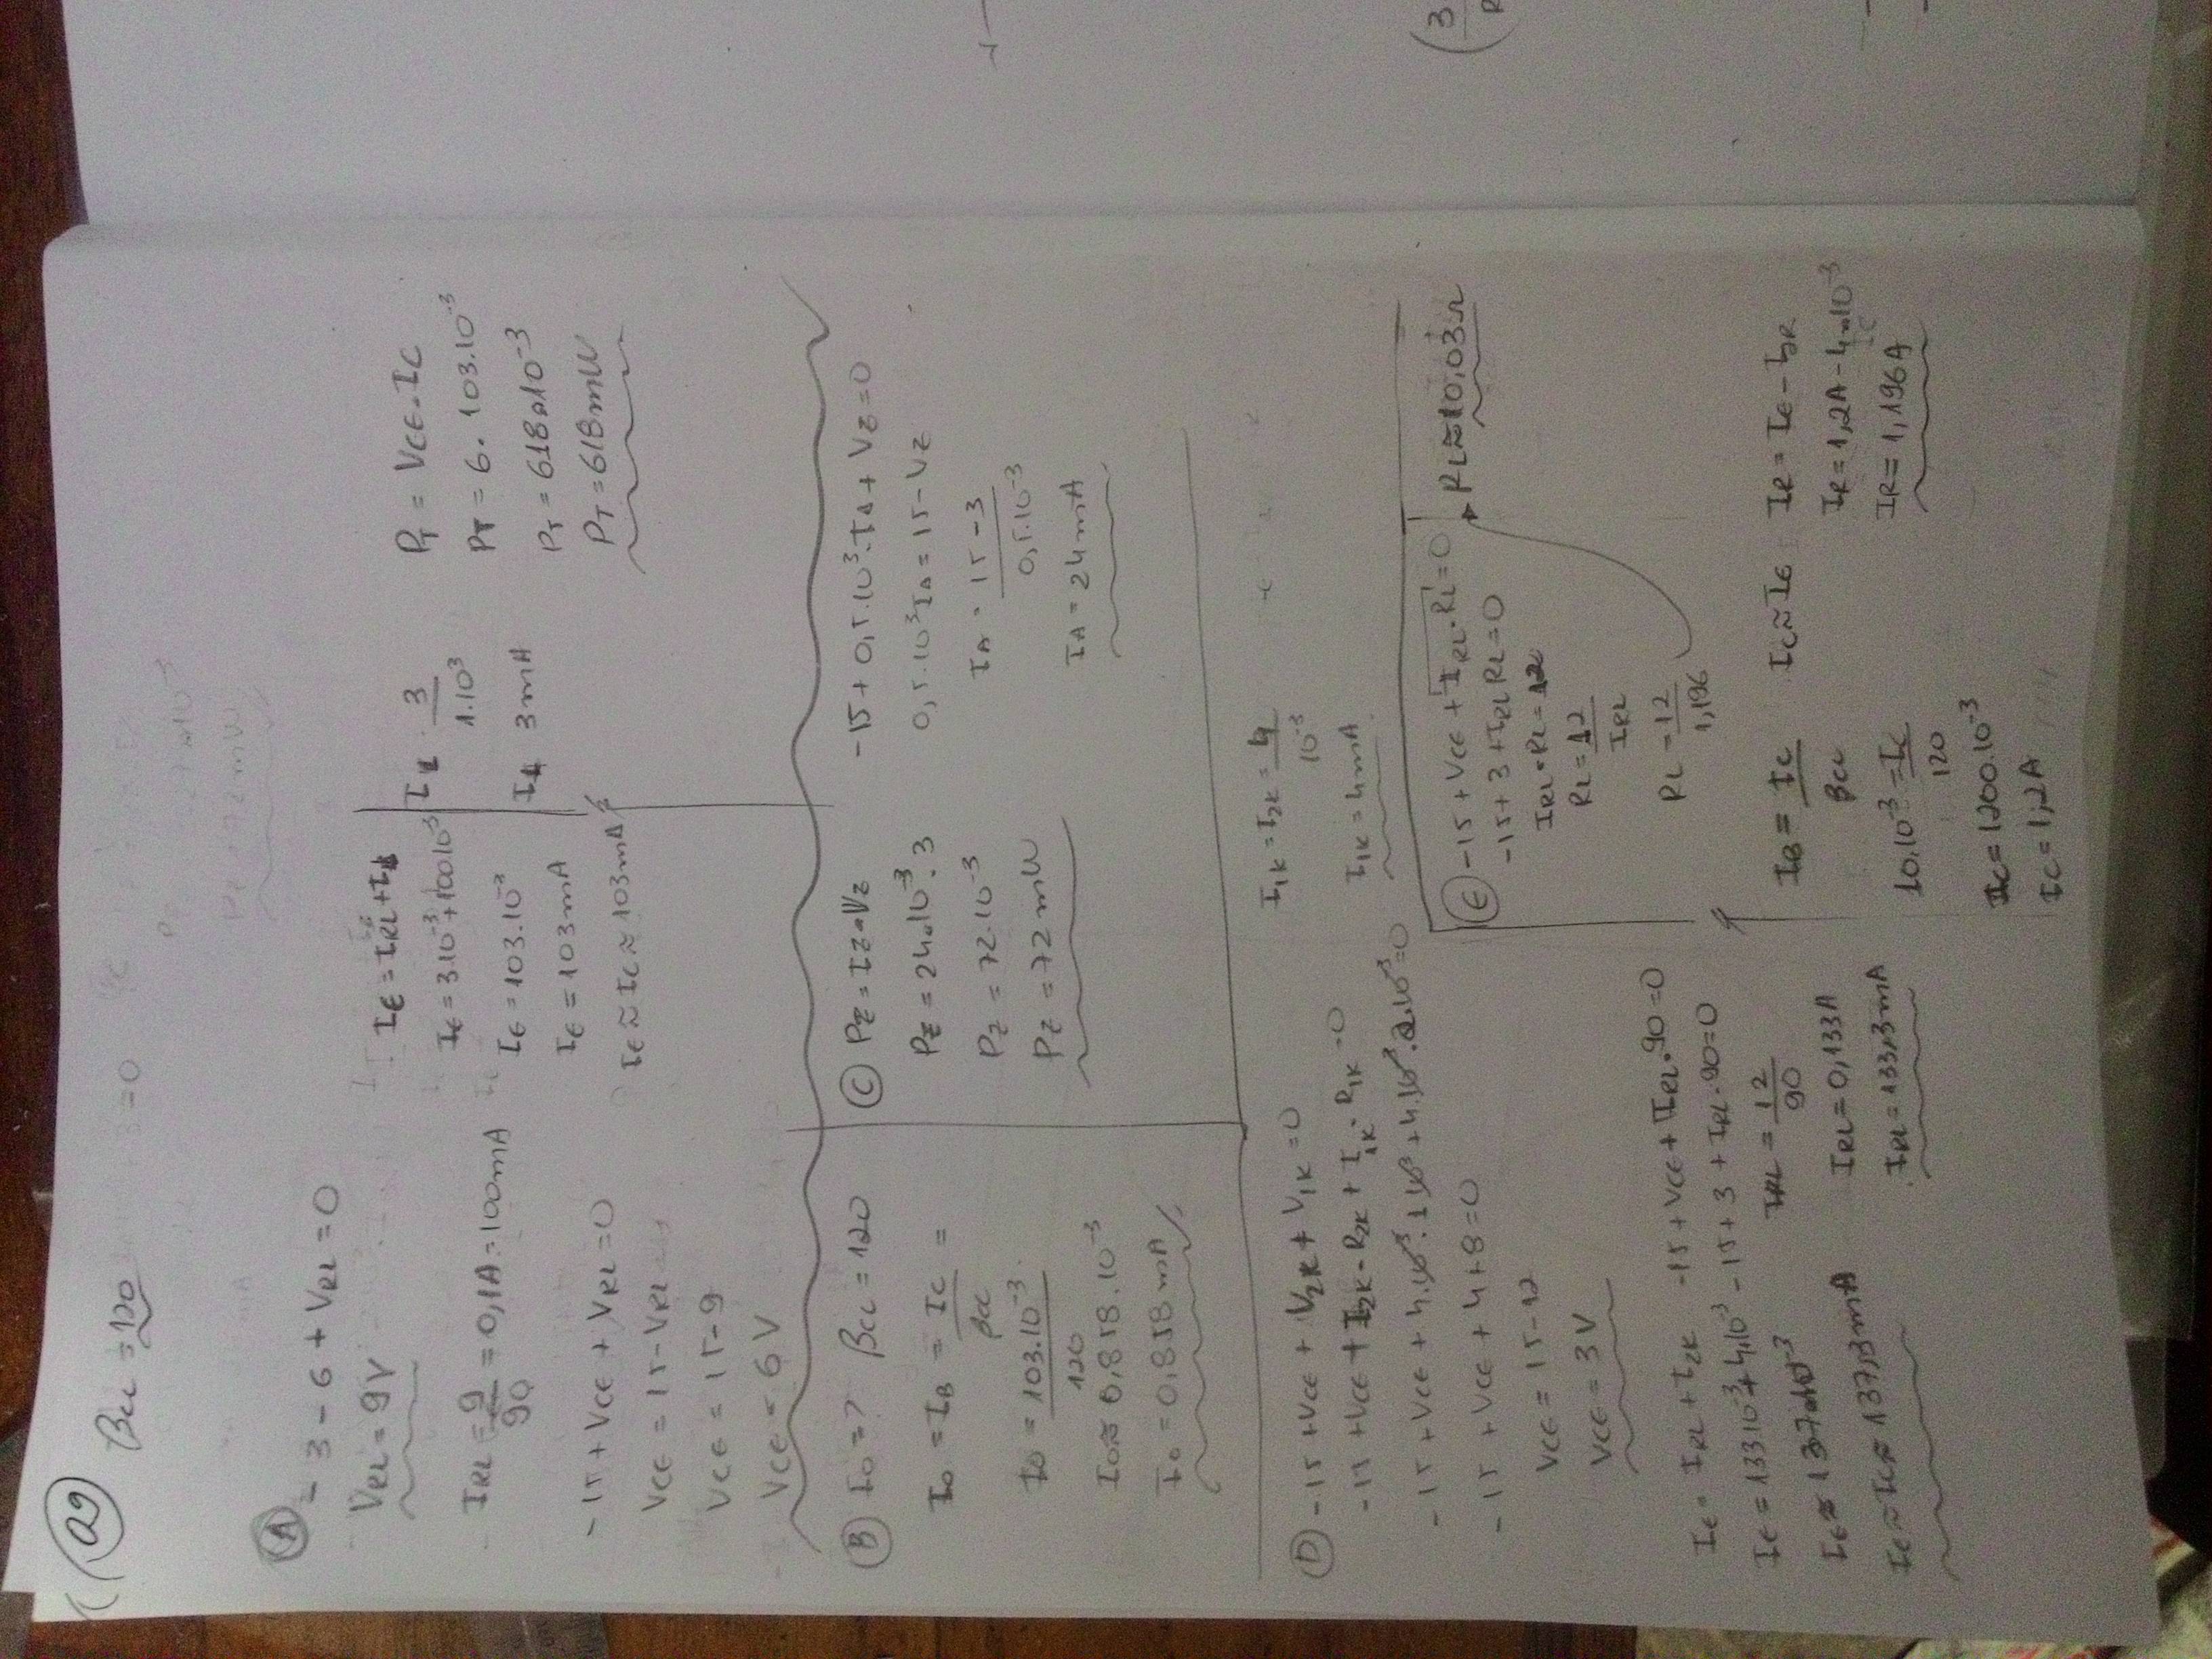 Q9) βcc = 120
A) -3 - 6 + VRL = 0
VRL = 9V
IRL = 9/90 = 0,1A = 100mA
-15 + VCE + VRL = 0
VCE = 15 - VRL
VCE = 15 - 9
VCE = 6V
IE = IRL + I1
IE = 3.10^-3 + 100.10^-3
IE = 103.10^-3
IE = 103mA
IE ≈ IC ≈ 103mA
I1 = 3/1.10^3
I1 = 3mA
PT = VCE . IC
PT = 6 . 103.10^-3
PT = 618.10^-3
PT = 618mW
B) Io = ? βcc = 120
Io = IB = IC/βcc =
Io = 103.10^-3/120
Io ≈ 0,858.10^-3
Io = 0,858mA
C) PZ = IZ . VZ
PZ = 24.10^-3 . 3
PZ = 72.10^-3
PZ = 72mW
-15 + 0,5.10^3.IA + VZ = 0
0,5.10^3 IA = 15 - VZ
IA = 15 - 3/0,5.10^-3
IA = 24mA
D) -15 + VCE + V2K + V1K = 0
-15 + VCE + I2K . R2K + I1K . R1K = 0
-15 + VCE + 4.10^-3 . 1.10^3 + 4.10^-3 . 2.10^3 = 0
-15 + VCE + 4 + 8 = 0
VCE = 15 - 12
VCE = 3V
I1K = I2K = 4/10^-3
I1K = 4mA
IE = IRL + I2K
IE = 133.10^-3 + 4.10^-3
IE ≈ 137.10^-3
IE ≈ IC ≈ 137,3mA
-15 + VCE + IRL . 90 = 0
-15 + 3 + IRL . 90 = 0
IRL = 12/90
IRL = 0,133A
IRL = 133,3mA
E) -15 + VCE + IRL . RL = 0
-15 + 3 + IRL RL = 0
IRL . RL = 12
RL = 12/IRL
RL = 12/1,196
RL ≈ 10,03Ω
IB = IC/βcc
10.10^-3 = IC/120
IC = 1200.10^-3
IC = 1,2A
IC ≈ IE
IR = 1,2A - 4.10^-3
IR = 1,196A
(3